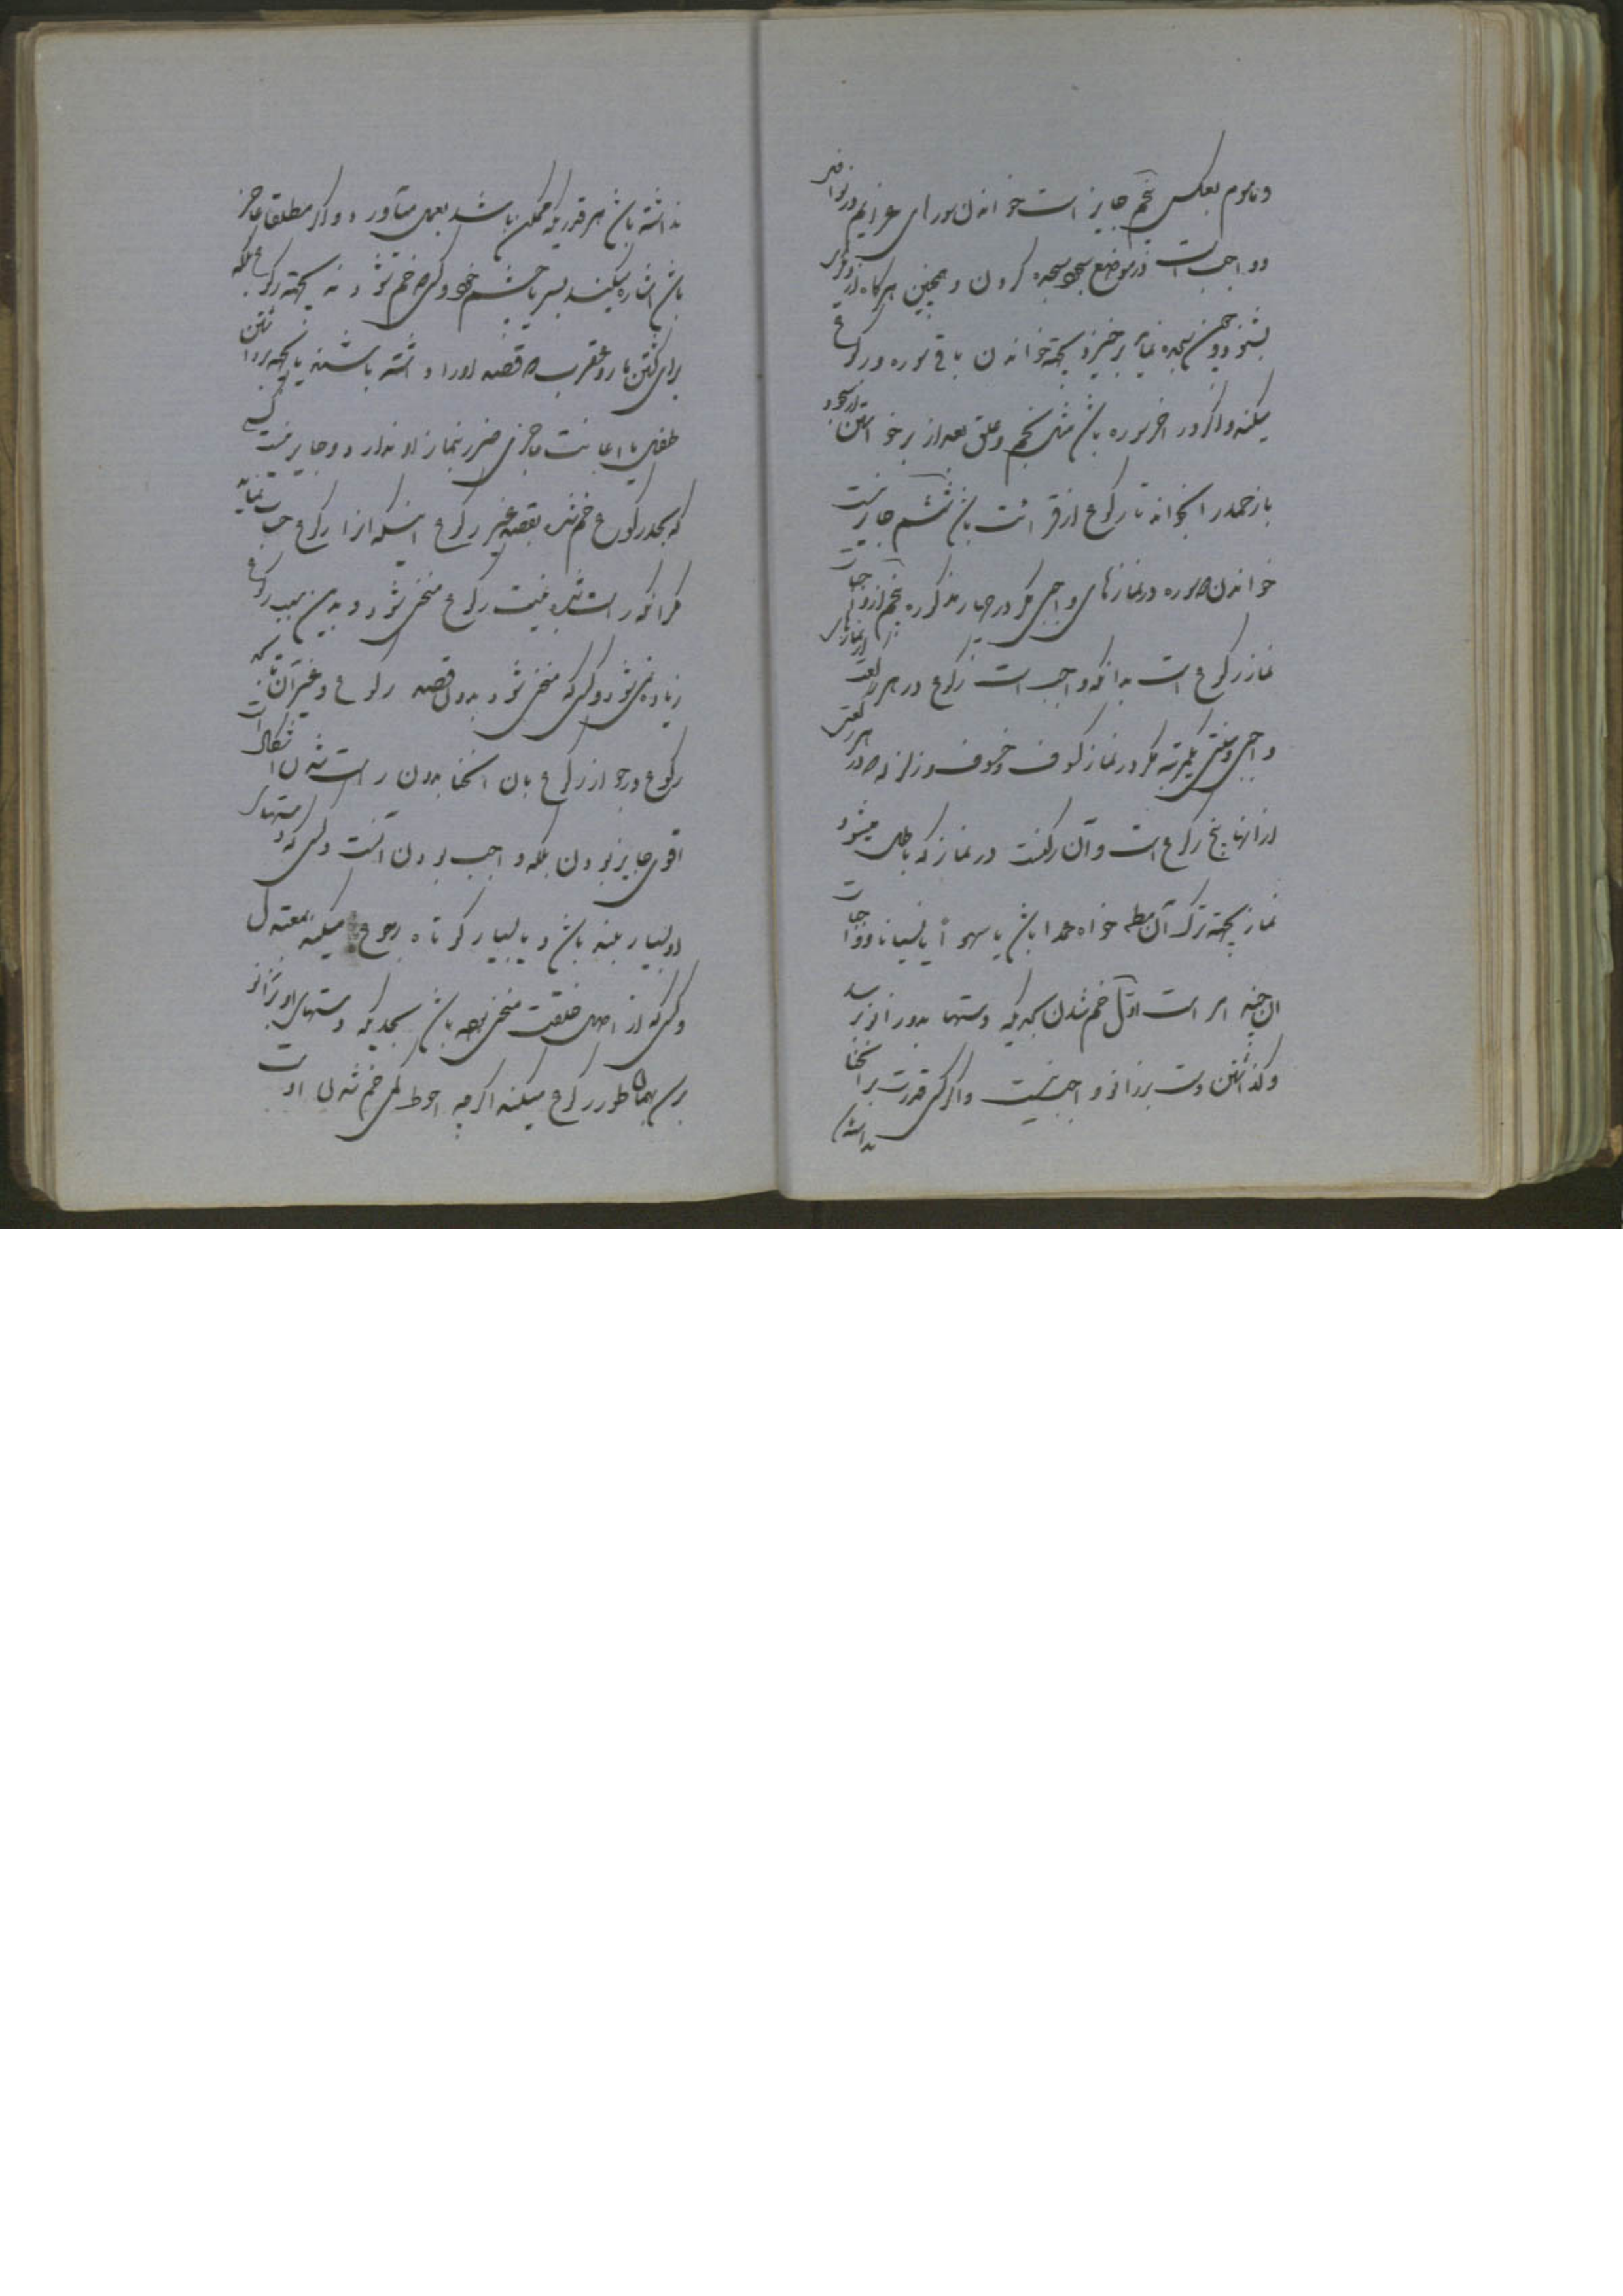 و ماموم بعکس پنجم جایز است خواندن سورهای عزایم در نوافل
و واجب است در موضع سجود سجده کردن و همچنین هرگاه از دیگری
بشنود و چون سجده نماید برخیزد بجهة خواندن باقی سوره و رکوع
میکند و اگر در اخر سوره باشد مثل نجم و علق بعد از برخواستن از سجود
باز حمد را بخواند تا رکوع از قرائت باشد ششم جایز نیست
خواندن سوره در نمازهای واجبی مگر در چهار مذکوره پنجم از واجبات
نماز رکوع است بدانکه واجب است رکوع در هر رکعت از نمازهای
واجبی و سنتی یکمرتبه مگر در نماز کسوف و خسوف و زلزله که در هر رکعتی
از انها پنج رکوع است و آن رکنست در نماز که باطل میشود
نماز بجهة ترک آن مط خواه عمدا باشد یا سهوا یا نسیانا و واجبات
ان چند امر است اول خم شدن بحدیکه دستها بدو زانو برسد
و گذاشتن دست بر زانو واجب نیست و اگر کسی قدرت بر انحنا
نداشته
نداشته باشد هر قدریکه ممکن باشد بعمل میآورد و اگر مطلقا عاجز
باشد اشاره میکند بسر یا چشم خود و کسیکه خم شود نه بجهة رکوع بلکه
برای کشتن مار و عقرب که قصد او را داشته باشند یا بجهة برداشتن
طفلی یا اعانت عاجزی ضرر بنماز او ندارد و جایز نیست کسی
که بحد رکوع خم شده بقصد غیر رکوع اینکه انرا رکوع حساب نماید
مگر انکه راست شده بنیت رکوع منحنی شود و بدین سبب رکوع
زیاده نمیشود و کسی که منحنی شود بدون قصد رکوع و غیر آن تا بحد
رکوع در جواز رکوع بان انحنا بدون راست شدن اشکال است
اقوی جایز بودن بلکه واجب بودن آنست و کسی که دستهای
او بسیار بلند باشد و یا بسیار کوتاه رجوع میکند بمعتدل
و کسی که از اصل خلقت منحنی بوده باشد بحدیکه دستهای او بزانو
برسد بهمان طور رکوع میکند اگرچه احوط کمی خم شدن اوست